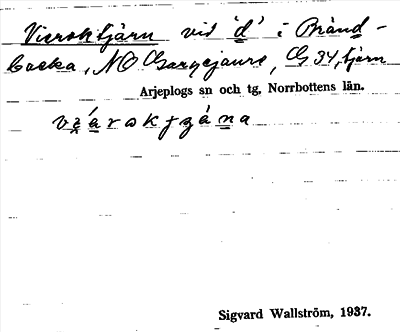 Vieroktjärn vid 'd' i Bränd-
backa, NO Gargejaure, G 34, tjärn
Arjeplogs sn och tg, Norrbottens län.
Sigvard Wallström, 1937.